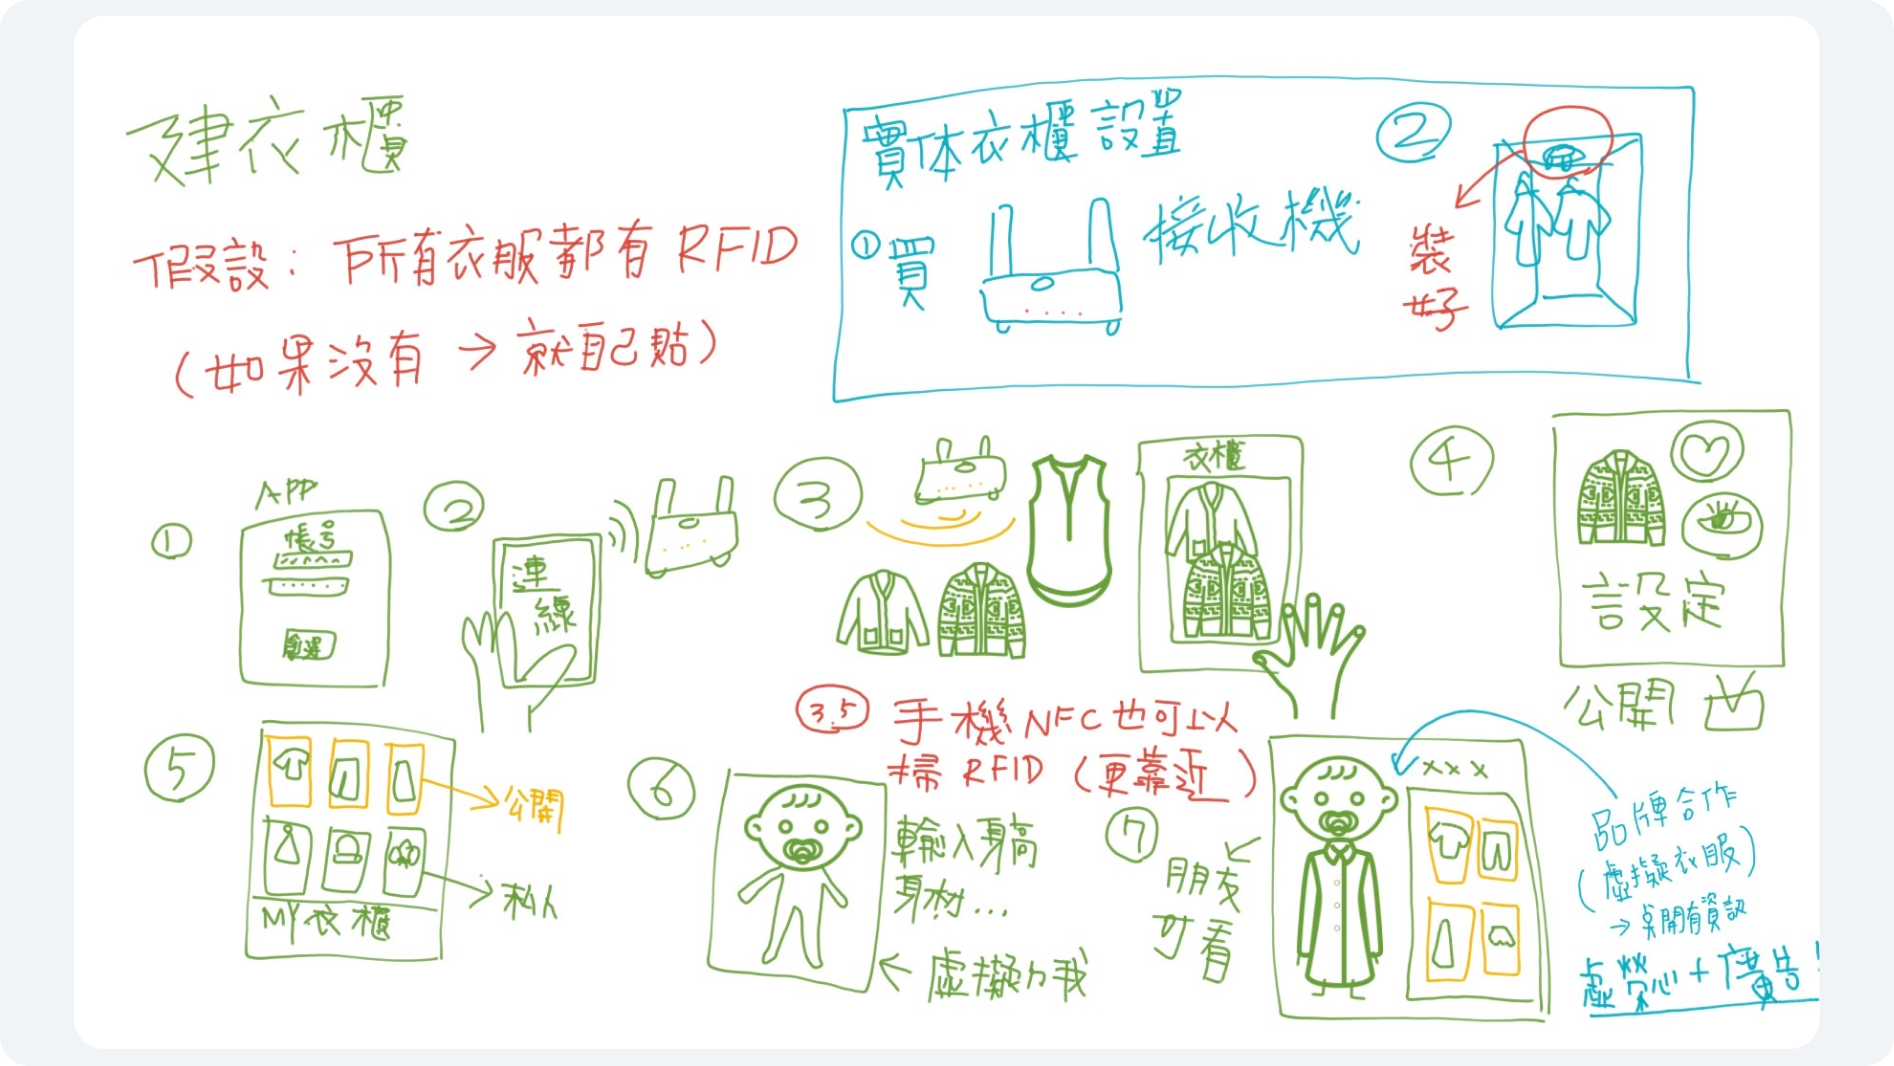 建衣櫃
假設：所有衣服都有 RFID
（如果沒有 → 就自己貼）
實体衣櫃設置
① 買
接收機
②
裝
好
①
APP
帳号
②
連
線
③
衣櫃
④
設定
公開
3.5 手機NFC也可以
掃 RFID（更靠近）
⑤
公開
私人
MY衣櫃
⑥
輸入身高
身材...
← 虛擬力我
⑦
朋友
可看
×××
品牌合作
（虛擬衣服）
→ 點開有資訊
虛榮心+廣告！